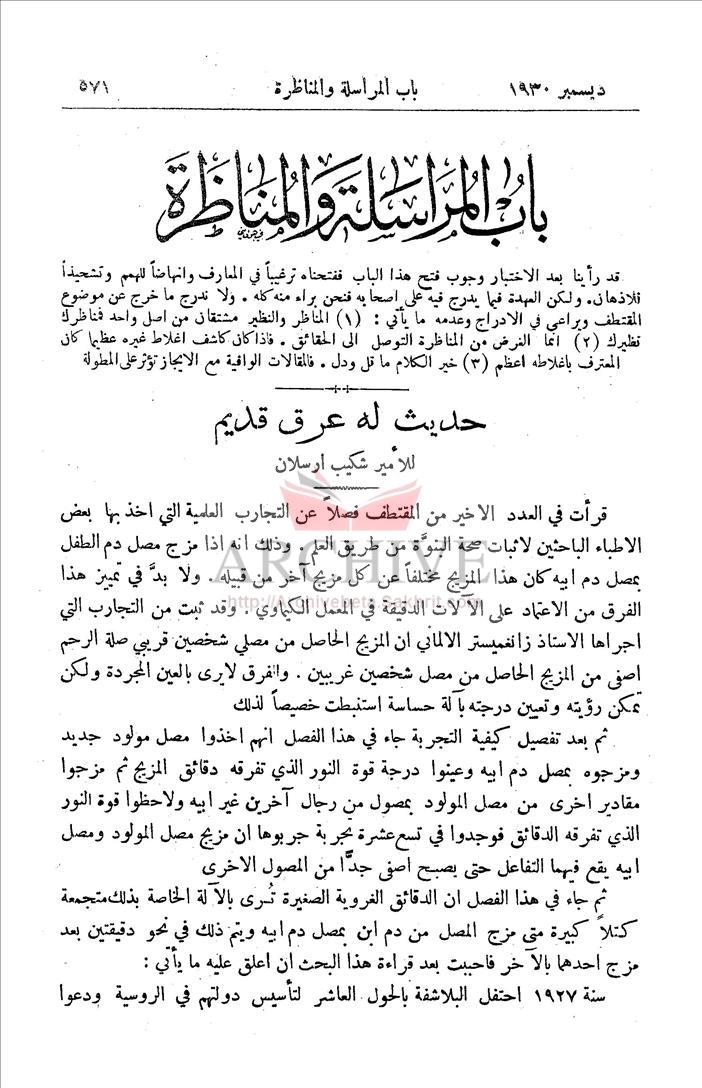 ديسمبر ١٩٣٠ باب المراسلة والمناظرة ٥٧١
باب المراسلة والمناظرة
قد رأينا بعد الاختبار وجوب فتح هذا الباب ففتحناه ترغيباً في المعارف وانهاضاً للهمم وتشحيذاً
للاذهان. ولكن العهدة فيما يدرج فيه على اصحابه فنحن براء منه كله . ولا ندرج ما خرج عن موضوع
المقتطف ويراعى في الادراج وعدمه ما يأتي : (١) المناظر والنظير مشتقان من اصل واحد فمناظرك
نظيرك (٢) انما الغرض من المناظرة التوصل الى الحقائق . فاذا كان كاشف اغلاط غيره عظيما كان
المعترف باغلاطه اعظم (٣) خير الكلام ما قل ودل . فالمقالات الوافية مع الايجاز تؤثر على المطولة
حديث له عرق قديم
للأمير شكيب ارسلان
قرأت في العدد الاخير من المقتطف فصلاً عن التجارب العلمية التي اخذ بها بعض
الاطباء الباحثين لاثبات صحة البنوَّة من طريق العلم . وذلك انه اذا مزج مصل دم الطفل
بمصل دم ابيه كان هذا المزيج مختلفاً عن كل مزيج آخر من قبيله . ولا بدَّ في تمييز هذا
الفرق من الاعتماد على الآلات الدقيقة في المعمل الكيماوي . وقد ثبت من التجارب التي
اجراها الاستاذ زانغميستر الالماني ان المزيج الحاصل من مصلي شخصين قريبي صلة الرحم
اصفى من المزيج الحاصل من مصل شخصين غريبين . والفرق لا يرى بالعين المجردة ولكن
تمكن رؤيته وتعيين درجته بآلة حساسة استنبطت خصيصاً لذلك
ثم بعد تفصيل كيفية التجربة جاء في هذا الفصل انهم اخذوا مصل مولود جديد
ومزجوه بمصل دم ابيه وعينوا درجة قوة النور الذي تفرقه دقائق المزيج ثم مزجوا
مقادير اخرى من مصل المولود بمصول من رجال آخرين غير ابيه ولاحظوا قوة النور
الذي تفرقه الدقائق فوجدوا في تسع عشرة تجربة جربوها ان مزيج مصل المولود ومصل
ابيه يقع فيهما التفاعل حتى يصبح اصفى جدًّا من المصول الاخرى
ثم جاء في هذا الفصل ان الدقائق الغروية الصغيرة تُرى بالآلة الخاصة بذلك متجمعة
كتلاً كبيرة متى مزج المصل من دم ابن بمصل دم ابيه ويتم ذلك في نحو دقيقتين بعد
مزج احدهما بالآخر فاحببت بعد قراءة هذا البحث ان اعلق عليه ما يأتي :
سنة ١٩٢٧ احتفل البلاشفة بالحول العاشر لتأسيس دولتهم في الروسية ودعوا
ARCHIVE
http://Archivebeta.Sakhrit.com